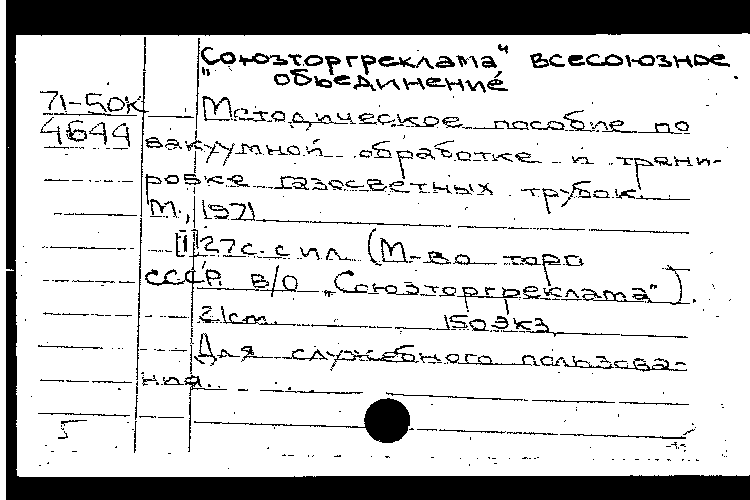 "Союзторгреклама" всесоюзное
объединение
71-50К
4644
Методическое пособие по
вакуумной обработке и трени-
ровке газосветных трубок.
М., 1971
[1] 27с. с ил (М-во торг
СССР. В/О „Союзторгреклама").
21см. 150экз
Для служебного пользова-
ния.
5